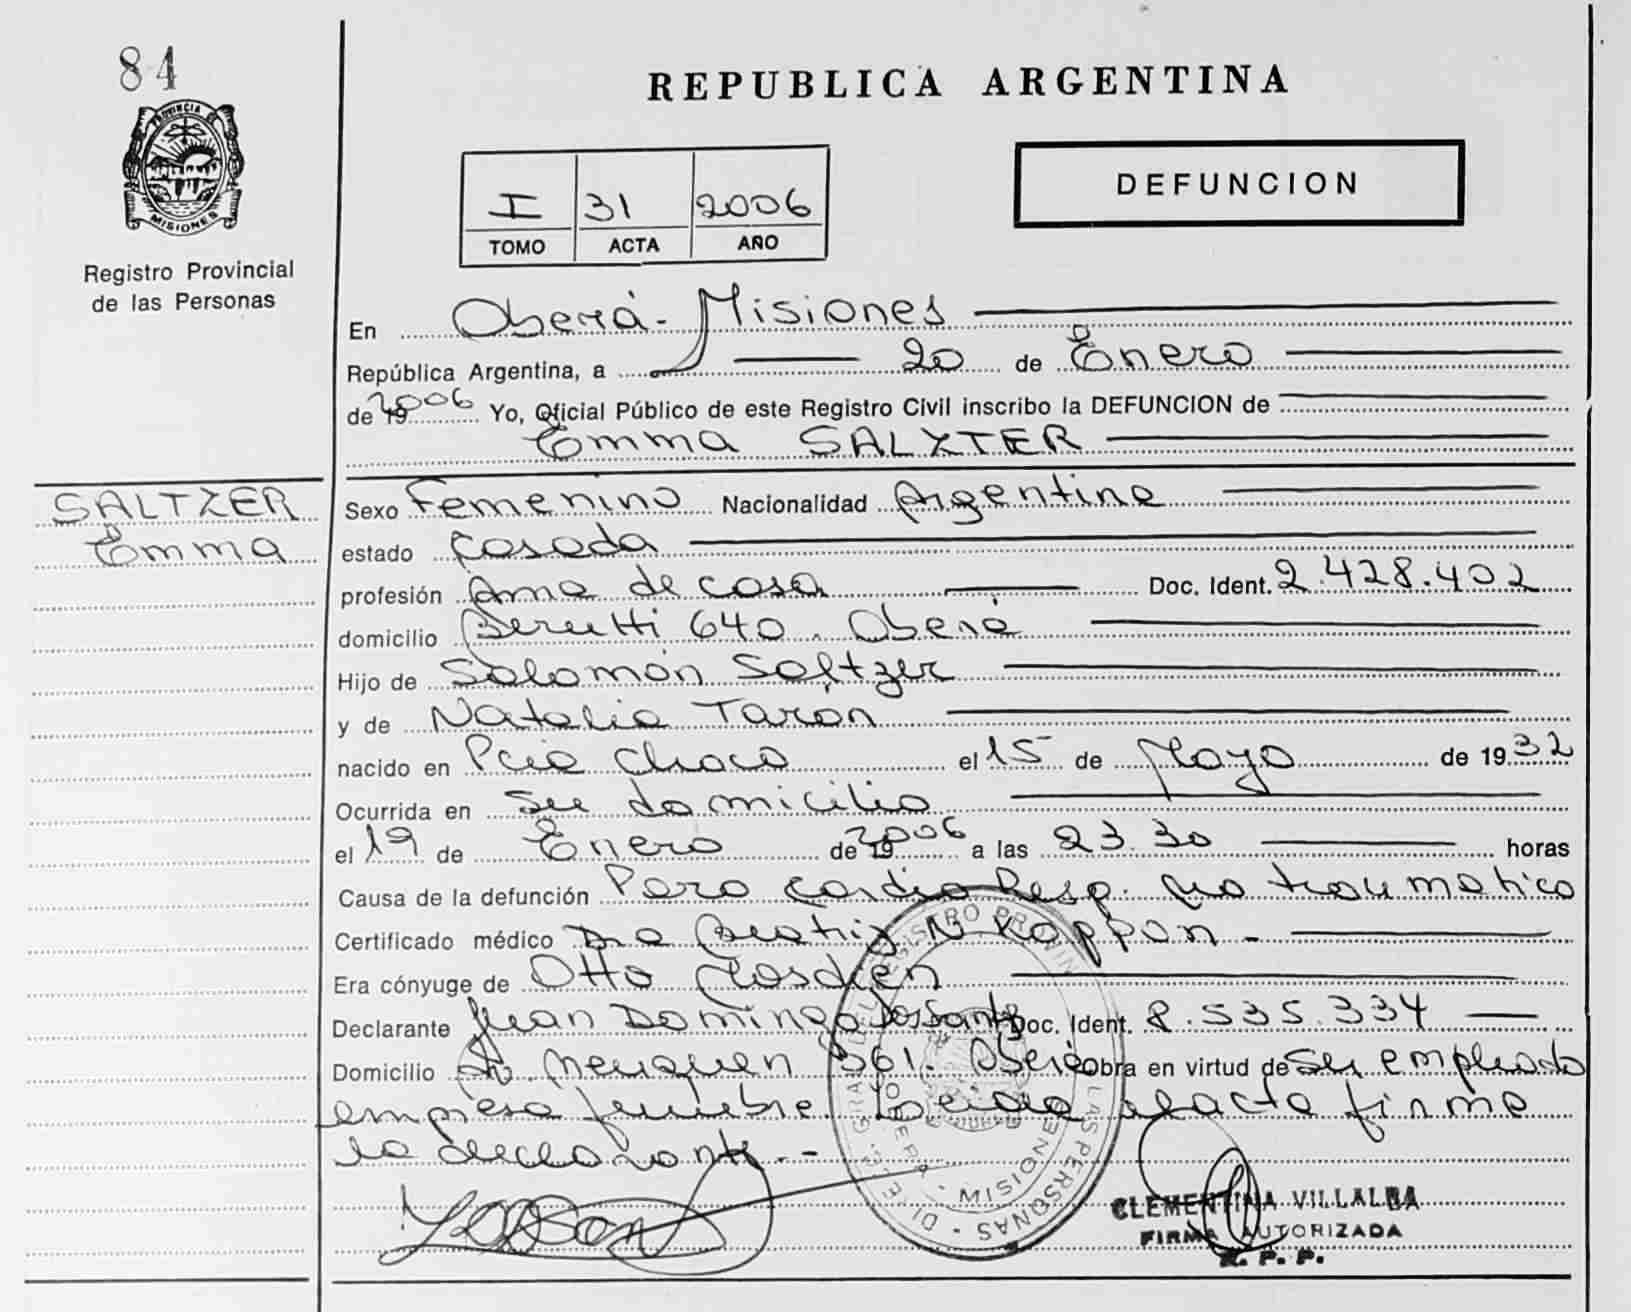 84
PROVINCIA DE
MISIONES
Registro Provincial
de las Personas
REPUBLICA ARGENTINA
I 31 2006
TOMO ACTA AÑO
DEFUNCION
En Oberá - Misiones
República Argentina, a 20 de Enero
de 19 2006 Yo, Oficial Público de este Registro Civil inscribo la DEFUNCION de
Emma SALZTER
SALTZER
Emma
Sexo Femenino Nacionalidad Argentina
estado casada
profesión Ama de casa Doc. Ident. 2.428.402
domicilio Berutti 640. Oberá
Hijo de Salomón Saltzer
y de Natalia Taron
nacido en Pcia Chaco el 15 de Mayo de 1932
Ocurrida en su domicilio
el 19 de Enero de 19 2006 a las 23.30 horas
Causa de la defunción Paro cardio Resp. no traumatico
Certificado médico Dra Beatriz N Koppon -
Era cónyuge de Otto
Declarante Juan Domingo Dos Santos Doc. Ident. 8.535.334
Domicilio Neuquen 361. Oberá Obra en virtud de ser empleado
empresa funebre Leida el acta firma
la declarante. -
REGISTRO PROVINCIAL
LAS PERSONAS
OBERA - MISIONES
CLEMENTINA VILLALBA
FIRMA AUTORIZADA
R. P. P.